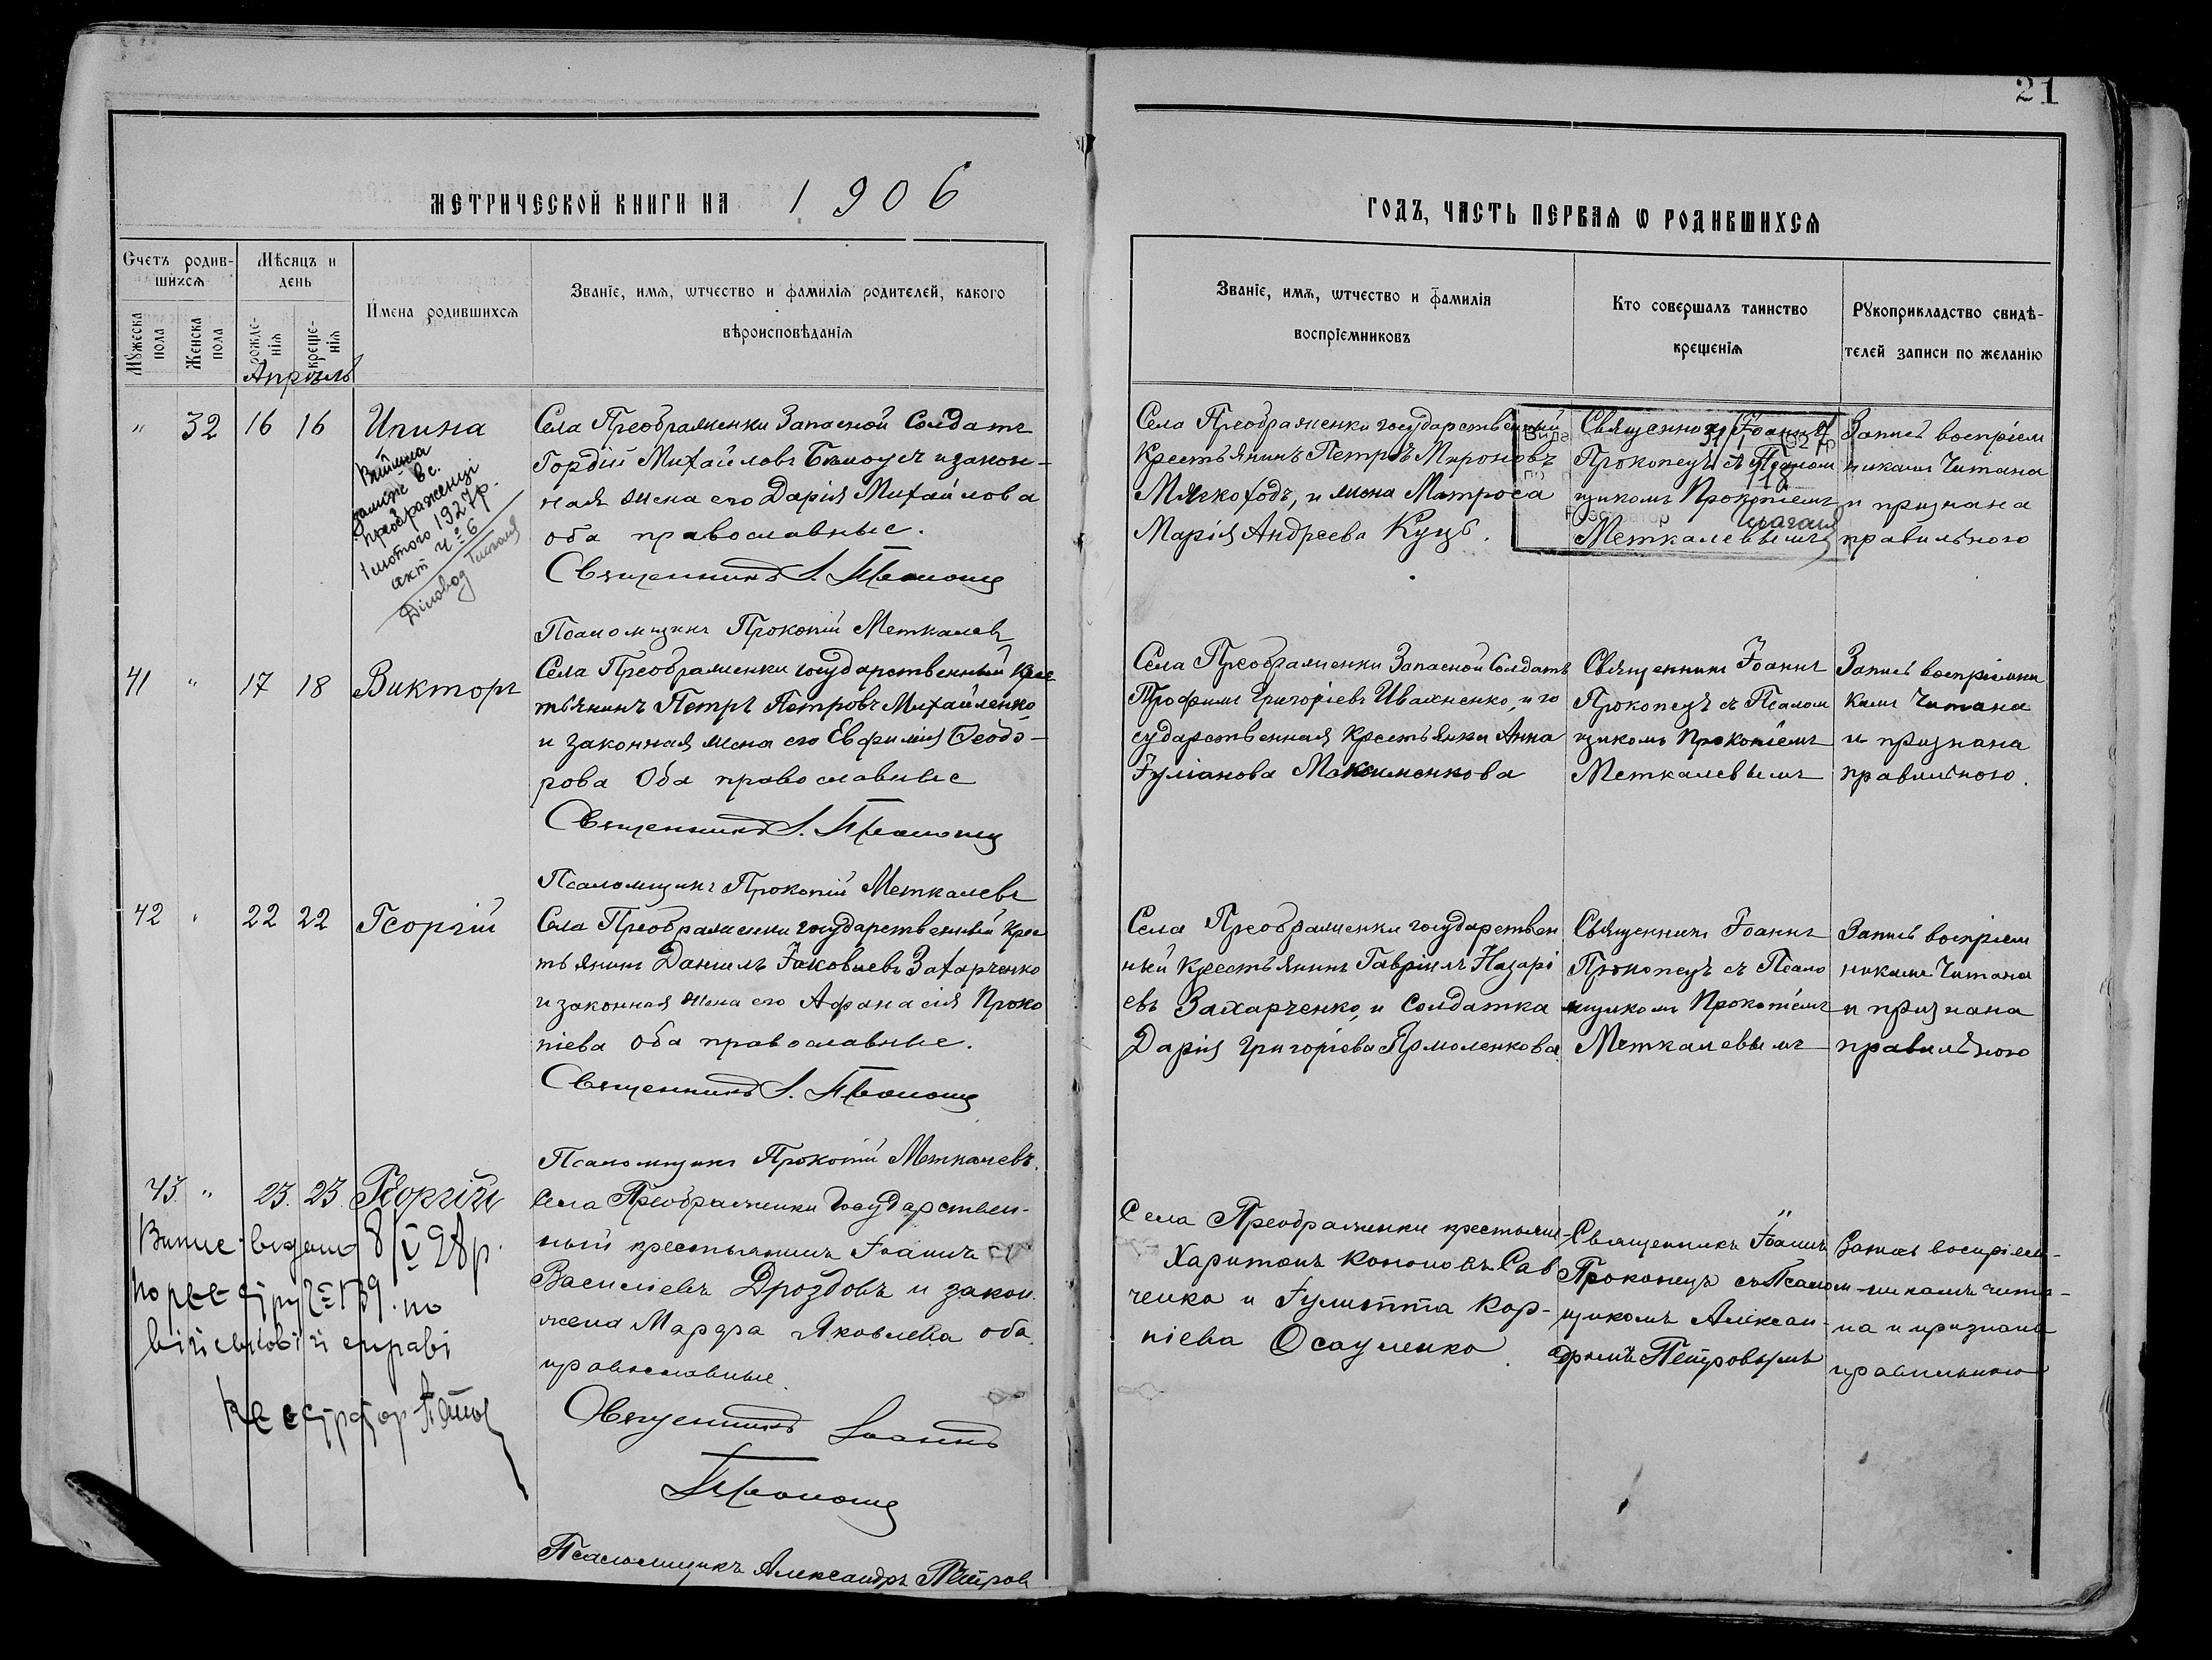 21
МЕТРИЧЕСКОЙ КНИГИ НА 1906
ГОДЪ, ЧАСТЬ ПЕРВАѦ Ѡ РОДИВШИХСѦ
Счетъ родив-
шихсѧ
Мѣсяцъ и
день
Имена родившихсѧ
Званіе, имѧ, ѡтчество и фамилія родителей, какого
вѣроисповѣданія
Мꙋжеска
пола
Женска
пола
рожде-
нія
креще-
нія
Апрѣль
Званіе, имѧ, ѡтчество и фамилія
воспріемниковъ
Кто совершалъ таинство
крещенія
Рꙋкоприкладство свидѣ-
телей записи по желанію
" 32 16 16 Ирина
заміж в с.
Преображенці
1 лютого 1927 р.
акт ч = 6
Діловод
Села Преображенки Запасной Солдатъ
Гордій Михайловъ Билоусъ и закон-
ная жена его Дарія Михайлова
оба православные.
Священникъ І. Прокопецъ
Псаломщикъ Прокопій Меткалевъ
Села Преображенки государственный
Крестьянинъ Петръ Мироновъ
Мягкоходъ, и жена Матроса
Марія Андреева Куцъ.
Священникъ Іоаннъ
Прокопецъ съ Псалом
щикомъ Прокопіемъ
Меткалевымъ
Запись воспріем
никами читана
и признана
правильною
41 " 17 18 Викторъ
Села Преображенки государственный крес
тьянинъ Петръ Петровъ Михайленко
и законная жена его Евфимія Ѳеодо-
рова Оба православные
Священникъ І. Прокопецъ
Псаломщикъ Прокопій Меткалевъ
Села Преображенки Запасной Солдатъ
Трофимъ Григоріевъ Ивахненко, и го
сударственная Крестьянка Анна
Іуліанова Максименкова
Священникъ Іоаннъ
Прокопецъ съ Псалом
щикомъ Прокопіемъ
Меткалевымъ
Запись воспріемни
ками читана
и признана
правильною.
42 " 22 22 Георгій
Села Преображенки государственный Крес
тьянинъ Даніилъ Іаковлевъ Захарченко
и законная жена его Афанасія Проко
піева Оба православные.
Священникъ І. Прокопецъ
Псаломщикъ Прокопій Меткалевъ.
Села Преображенки государствен
ный Крестьянинъ Гавріилъ Назарі
евъ Захарченко, и Солдатка
Дарія Григоріева Ярмоленкова
Священникъ Іоаннъ
Прокопецъ съ Псало
мщикомъ Прокопіемъ
Меткалевымъ
Запись воспріем
никами Читана
и признана
правильною
43. " 23. 23. Георгій
Випис видано 8/V 28 р.
по реєстру № 139. по
військовій справі
Реєстратор
Села Преображенки Государствен-
ный крестьянинъ Іоаннъ
Василіевъ Дроздовъ и закон.
жена Марфа Яковлева оба
православные.
Священникъ Іоаннъ
Прокопецъ
Псаломщикъ Александръ Петров
Села Преображенки крестьянин
Харитонъ Кононовъ Сав
ченко и Іулитта Кор-
ніева Осауленко.
Священникъ Іоаннъ
Прокопецъ съ Псалом-
щикомъ Алексан-
дромъ Петровымъ
Запись воспріем-
никами чита-
на и признана
правильною